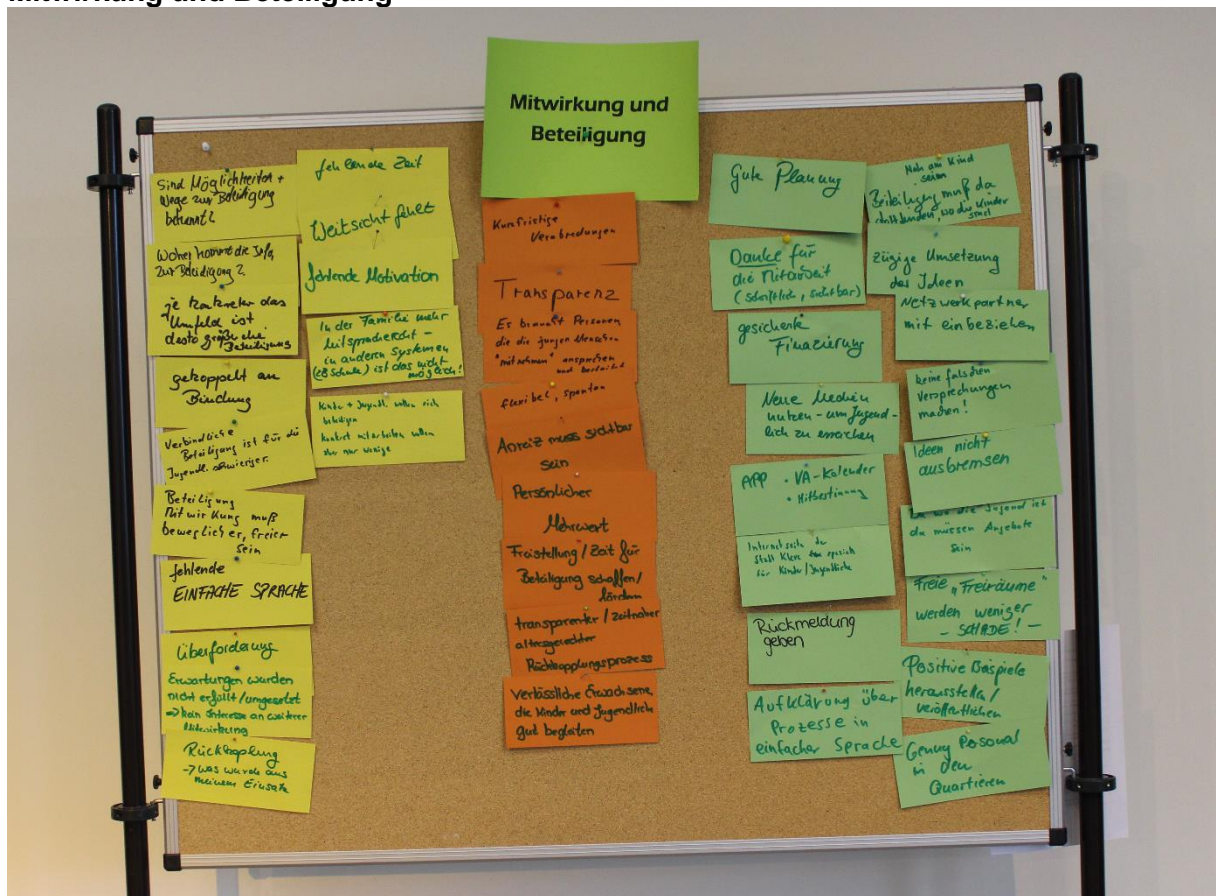 Mitwirkung und Beteiligung
Mitwirkung und
Beteiligung
Sind Möglichkeiten +
Wege zur Beteiligung
bekannt?
Woher kommt die Info
zur Beteiligung?
je konkreter das
Umfeld ist
desto größer die
Beteiligung
gekoppelt an
Bindung
Verbindliche
Beteiligung ist für die
Jugendl. schwieriger.
Beteiligung
Mitwirkung muß
beweglicher, freier
sein
fehlende
EINFACHE SPRACHE
Überforderung
Erwartungen wurden
nicht erfüllt/umgesetzt
→ kein Interesse an weiterer
Mitwirkung
Rückkopplung
→ was wurde aus
meinem Einsatz
fehlende Zeit
Weitsicht fehlt
fehlende Motivation
In der Familie mehr
Mitspracherecht –
in anderen Systemen
(zB Schule) ist das nicht
möglich!
Kinder + Jugendl. wollen sich
beteiligen
Konkret mitarbeiten wollen
aber nur wenige
Kurzfristige
Verabredungen
Transparenz
Es braucht Personen
die die jungen Menschen
"mitnehmen" ansprechen
und
flexibel, spontan
Anreiz muss sichtbar
sein
Persönlicher
Mehrwert
Freistellung / Zeit für
Beteiligung schaffen/
fördern
transparenter / zeitnaher
altersgerechter
Rückkopplungsprozess
Verlässliche Erwachsene,
die Kinder und Jugendlich
gut begleiten
Gute Planung
Danke für
die Mitarbeit
(schriftlich, sichtbar)
gesicherte
Finanzierung
Neue Medien
nutzen - um Jugend-
lich zu erreichen
APP • VA-Kalender
• Mitbestimmung
Internetseite der
Stadt Kleve speziell
für Kinder/Jugendliche
Rückmeldung
geben
Aufklärung über
Prozesse in
einfacher Sprache
Nah am Kind
sein
Beteiligung muß da
stattfinden, wo die Kinder
sind
zügige Umsetzung
der Ideen
Netzwerkpartner
mit einbeziehen
keine falschen
Versprechungen
machen!
Ideen nicht
ausbremsen
wo die Jugend ist
da müssen Angebote
sein
Freie „Freiräume"
werden weniger
– SCHADE! –
Positive Beispiele
herausstellen/
veröffentlichen
Genug Personal
in den
Quartieren